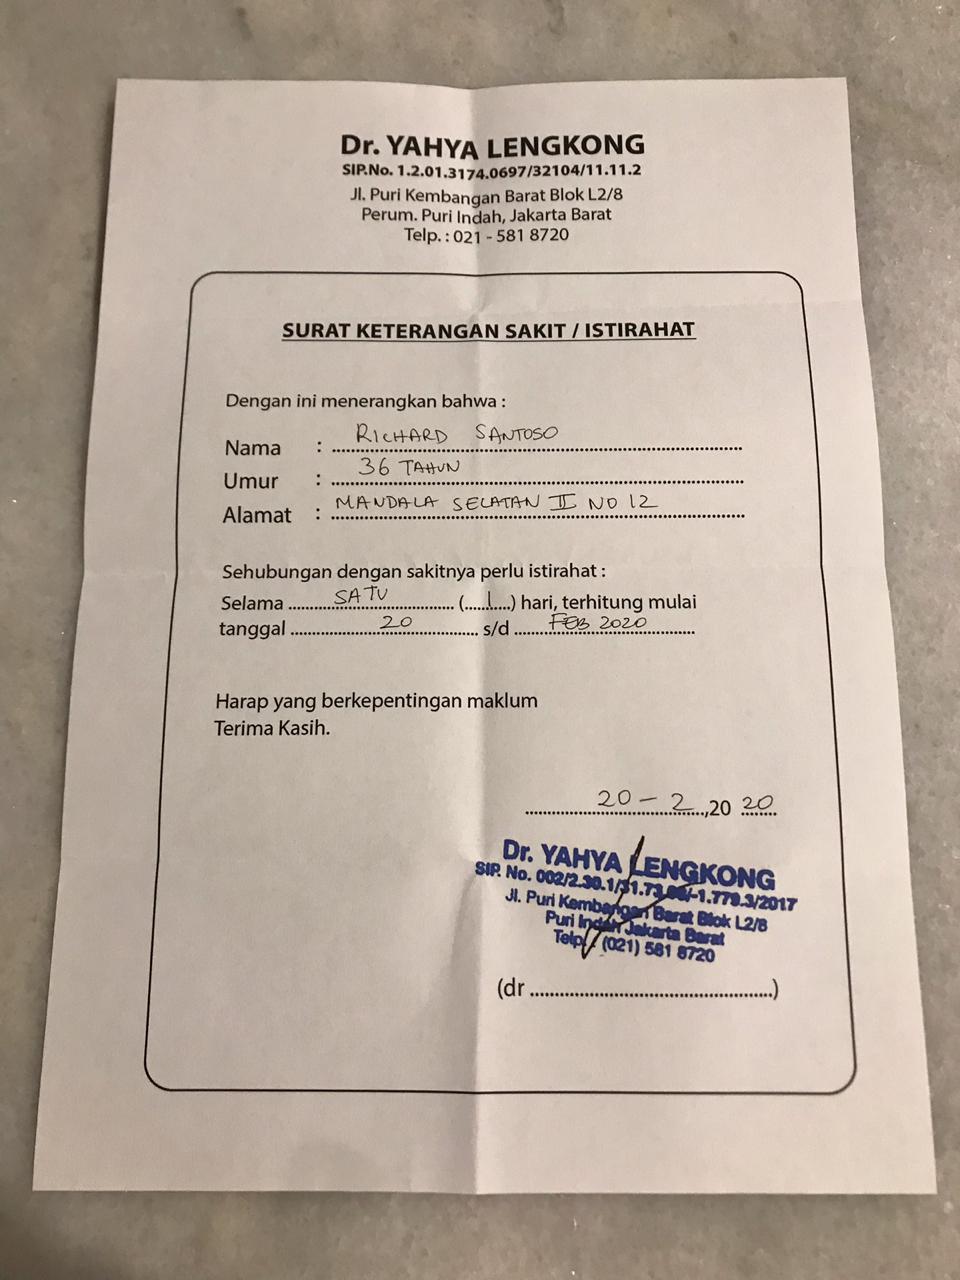 Dr. YAHYA LENGKONG
SIP.No. 1.2.01.3174.0697/32104/11.11.2
Jl. Puri Kembangan Barat Blok L2/8
Perum. Puri Indah, Jakarta Barat
Telp. : 021 - 581 8720
SURAT KETERANGAN SAKIT / ISTIRAHAT
Dengan ini menerangkan bahwa :
Nama : RICHARD SANTOSO
Umur : 36 TAHUN
Alamat : MANDALA SELATAN II NO 12
Sehubungan dengan sakitnya perlu istirahat :
Selama SATU (1) hari, terhitung mulai
tanggal 20 s/d FEB 2020
Harap yang berkepentingan maklum
Terima Kasih.
20 - 2 ,20 20
Dr. YAHYA LENGKONG
SIP. No.
Jl. Puri Kembangan Barat Blok L2/8
Puri Indah Jakarta Barat
Telp. (021) 581 8720
(dr ........................................)